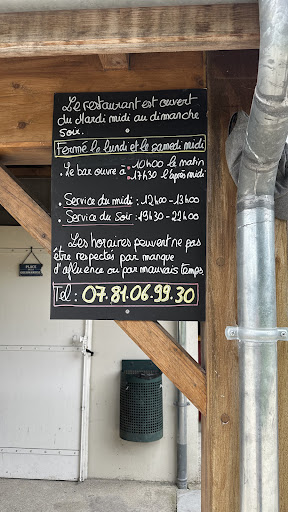 Le restaurant est ouvert
du Mardi midi au dimanche
soir.
Fermé le lundi et le samedi midi
. Le bar ouvre à : 10h00 le matin
17h30 l'après midi
. Service du midi : 12h00 - 13h00
. Service du Soir : 19h30 - 22h00
Les horaires peuvent ne pas
être respectés par manque
d'affluence ou par mauvais temps.
Tél : 07.81.06.99.30
PLACE